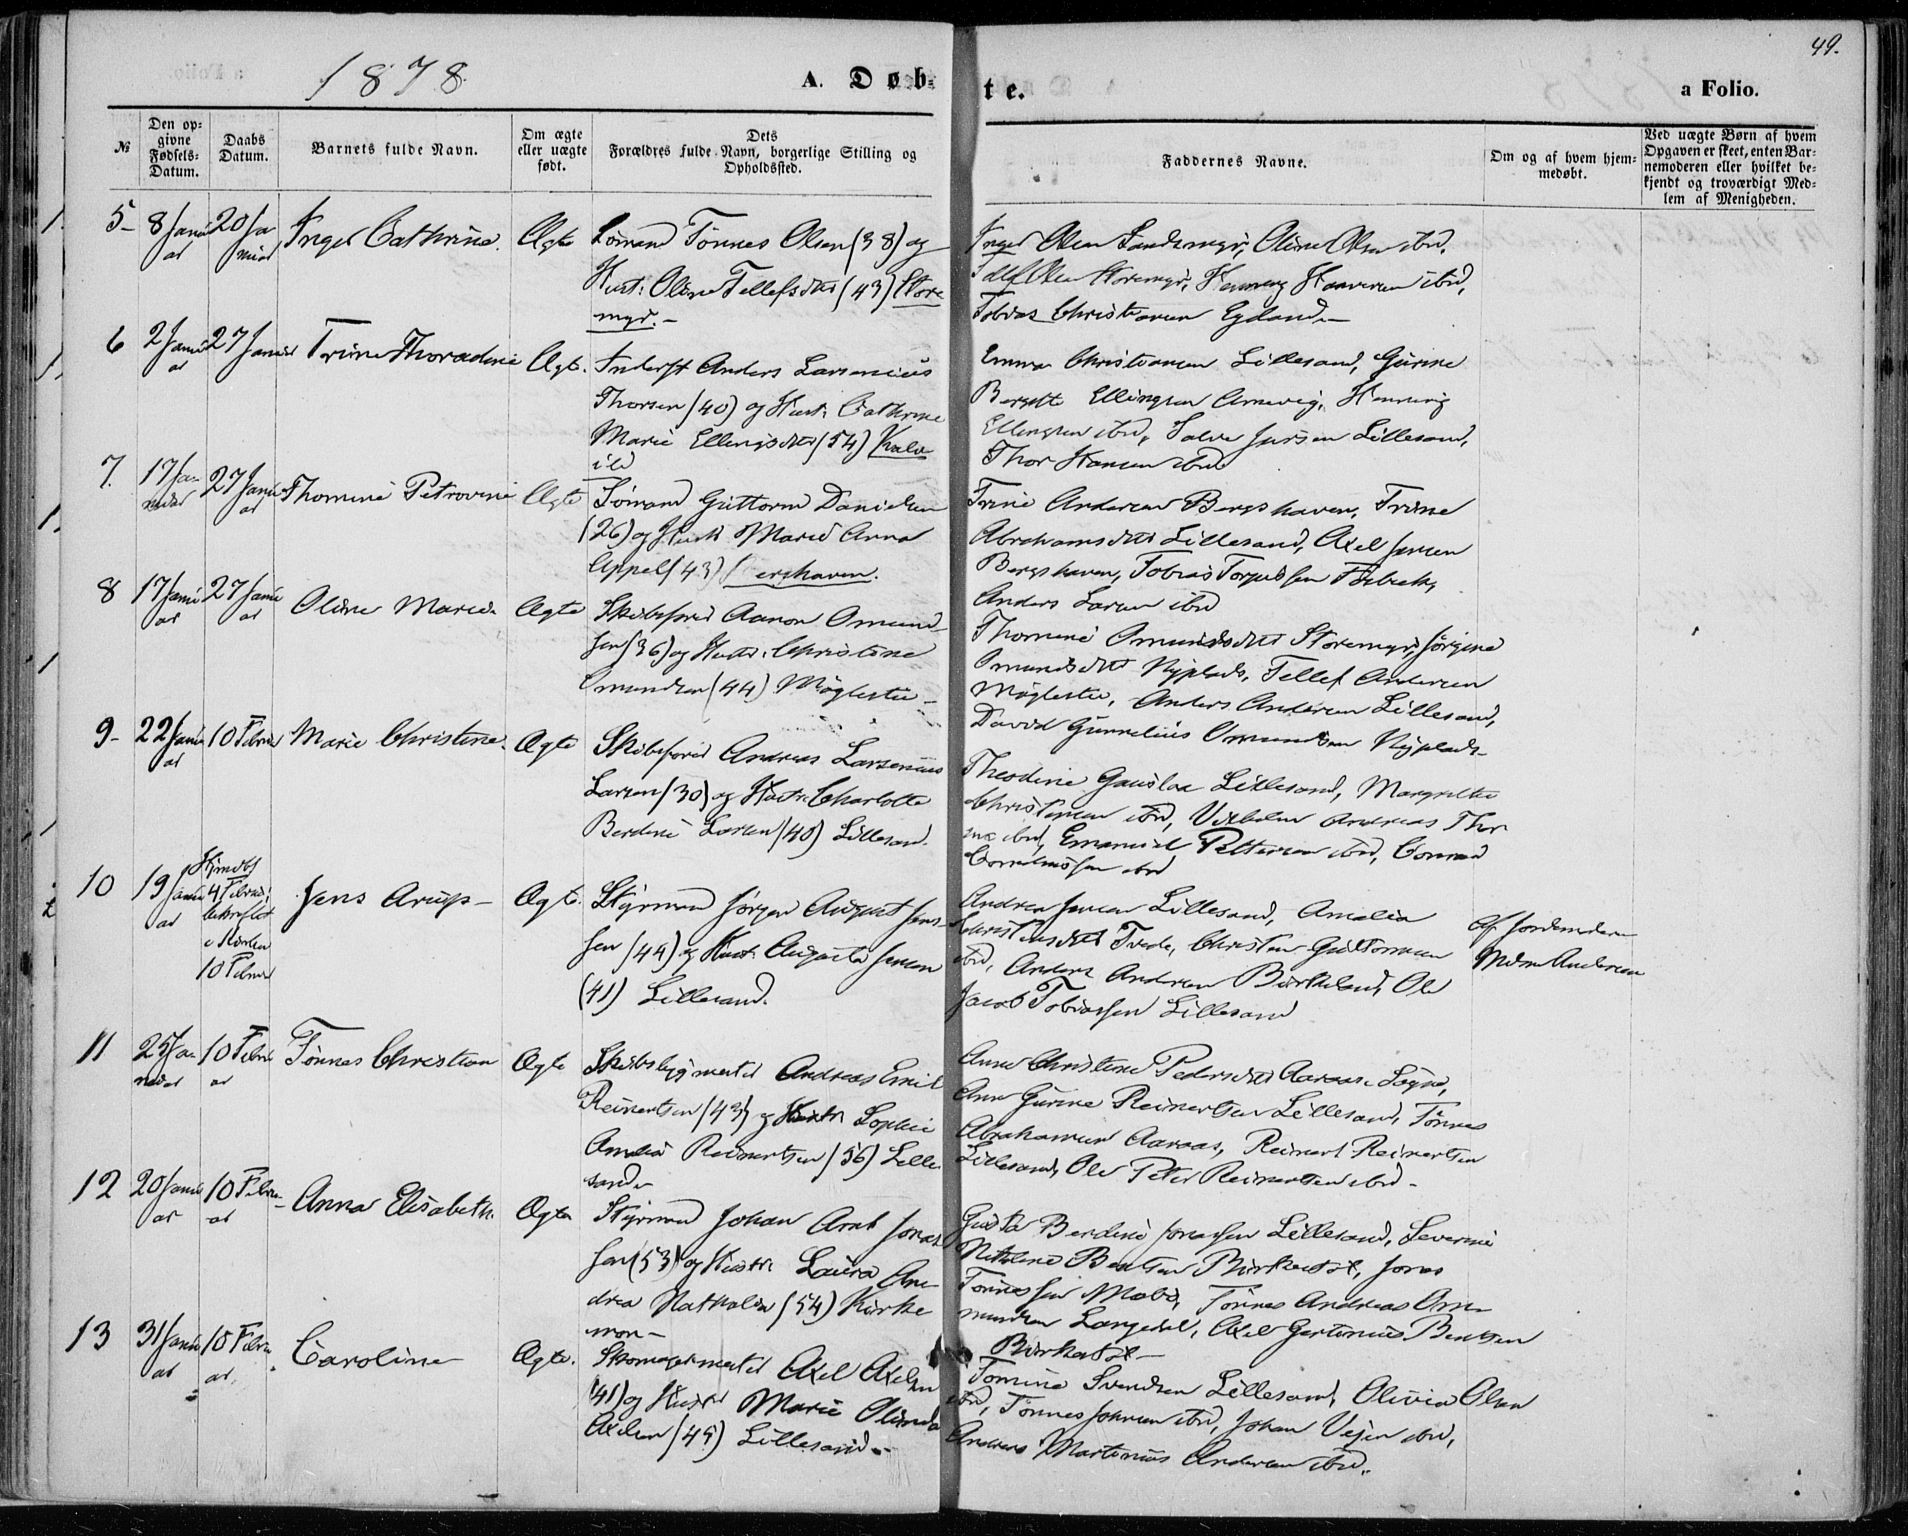 49.
1878
A. Døb-
te.
a Folio.
№
Den op-
givne
Fødsels-
Datum.
Daabs
Datum.
Barnets fulde Navn.
Om ægte
eller uægte
født.
Dets
Forældres fulde Navn, borgerlige Stilling og
Opholdssted.
Faddernes Navne.
Om og af hvem hjem-
medøbt.
Ved uægte Børn af hvem
Opgaven er skeet, enten Bar-
nemoderen eller hvilket be-
kjendt og troværdigt Med-
lem af Menigheden.
5 8 Janu
ar
20 Ja
nuar
Inger Cathrine.
Ægte
Sømand Tønnes Olsen (38) og
Hust: Oline Tellefsdtr (43) Store
myr.
Inger Olsen Sandemyr, Oline Olsen ibd,
Olsen Storemyr, Henning ibd,
Tobias Christensen Egeland
6 2 Janu
ar
27 Januar
Trine Thoradine
Ægt.
Inderst Anders Larsenius
Thorsen (40) og Hust: Cathrine
Marie Ellingsdtr (54) Kalv
ild
Emma Christensen Lillesand, Gurine
Bergitte Ellingsen Arnevig, Henning
Ellingsen ibd, Salve Jensen Lillesand,
Thor Hansen ibd
7. 17 Ja
nuar
27 Janu
ar
Thomine Petrovine
Ægte
Sømand Guttorm Danielsen
(26) og Hust: Marie Anna
Appel (43) Bergshaven.
Trine Andersen Bergshaven, Trine
Abrahamsdtr Lillesand, Axel Jensen
Bergshaven, Tobias Torjussen
Anders Larsen ibd
8 17 Janu
ar
27 Janu
ar
Oline Marie.
Ægte
Skibsfører Aaron Omund
sen (36) og Hustr: Christine
Omundsen (44) Møglestu
Thomine Omundsdtr Storemyr, Jørgine
Omundsdtr Nyplads, Tellef Andersen
Møglestu, Anders Andersen Lillesand,
David Gunnelius Omundsen Nyplads
9 22 Janu
ar
10 Februar
Marie Christine.
Ægte
Skibsfører Andreas Larsenius
Larsen (30) og Hustr: Charlotte
Berdine Larsen (40) Lillesand.
Theodine Gauslaa Lillesand, Margrethe
Christensen ibd, Vilhelm Andreas Thor
ibd, Emanuel Pettersen ibd, Conrad
Corneliussen ibd
10 19 Janu
ar
Hjemdbt
4 Februar
bekræftet
i Kirken
10 Februar
Jens Arup
Ægt.
Styrmand Jørgen August Jens
sen (44) og Hust: Augusta Jensen
(41) Lillesand.
Andrea Jensen Lillesand, Amalia
Christensdtr Tvede, Christen Guttormsen
ibd, Anders Andersen Birkeland, Ole
Jacob Tobiassen Lillesand
Af Jordemoderen
Mdm Andersen
11 25 Ja
nuar
10 Febru
ar
Tønnes Christian
Ægte
Skibsbygmester Andreas Emil
Reinertsen (43) og Hustr Sophie
Amalia Reinertsen (56) Lille
sand
Anne Christine Pedersdtr Aaraas Sogne,
Ane Gurine Reinertsen Lillesand, Tønnes
Abrahamsen Aaraas, Reinert Reinertsen
Lillesand, Ole Peter Reinertsen ibd
12 20 Janu
ar
10 Febru
ar
Anna Elisabeth.
Ægte
Styrmand Johan Arnt Jonas
sen (53) og Hustr: Laura An
drea Nathalia (54) Kirke
mon
Gusta Berdine Jonassen Lillesand, Severine
Nathalie Bentsen Birkedal, Jonas
Tønnessen Moland, Tønnes Andreas Om
mundsen Langedal, Axel Gertonius Bentsen
Birkedal
13 31 Janu
ar
10 Febru
ar.
Caroline
Ægte.
Skomagermester Axel Axelsen
(41) og Hustr Marie Olinda
Axelsen (45) Lillesand.
Tomine Svendsen Lillesand, Olivia Olsen
ibd, Tønnes Johnsen ibd, Johan Vejen ibd,
Andreas Martinius Andersen ibd.